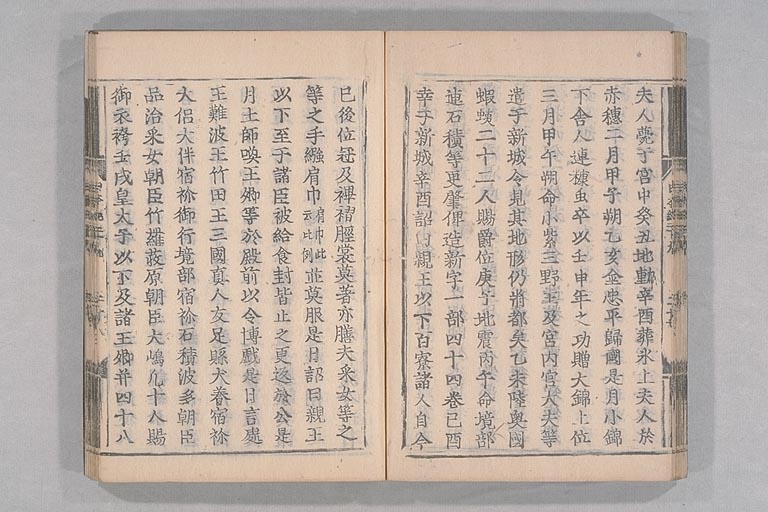 夫人薨于宮中癸丑地動辛酉葬氷上夫人於
赤穗二月甲子朔乙亥金忠平歸國是月小錦
下舍人連糠虫卒以壬申年之功贈大錦上位
三月甲午朔命小紫三野王及宮内官大夫等
遣于新城令見其地形仍將都矣乙未陸奧國
蝦蛦二十二人賜爵位庚子地震丙午命境部
連石積等更肇俾造新字一部四十四卷己酉
幸于新城辛酉詔曰親王以下百寮諸人自今
已後位冠及襅褶脛裳莫著亦膳夫采女等之
等之手繦肩巾肩巾此云比例並莫服是日詔曰親王
以下至于諸臣被給食封皆止之更返於公是
月土師
王難波王竹田王三國真人友足縣犬養宿祢
大侶大伴宿祢御行境部宿祢石積波多朝臣
品治采女朝臣竹羅藤原朝臣大嶋凢十人賜
御衣袴壬戌皇太子以下及諸王卿并四十八